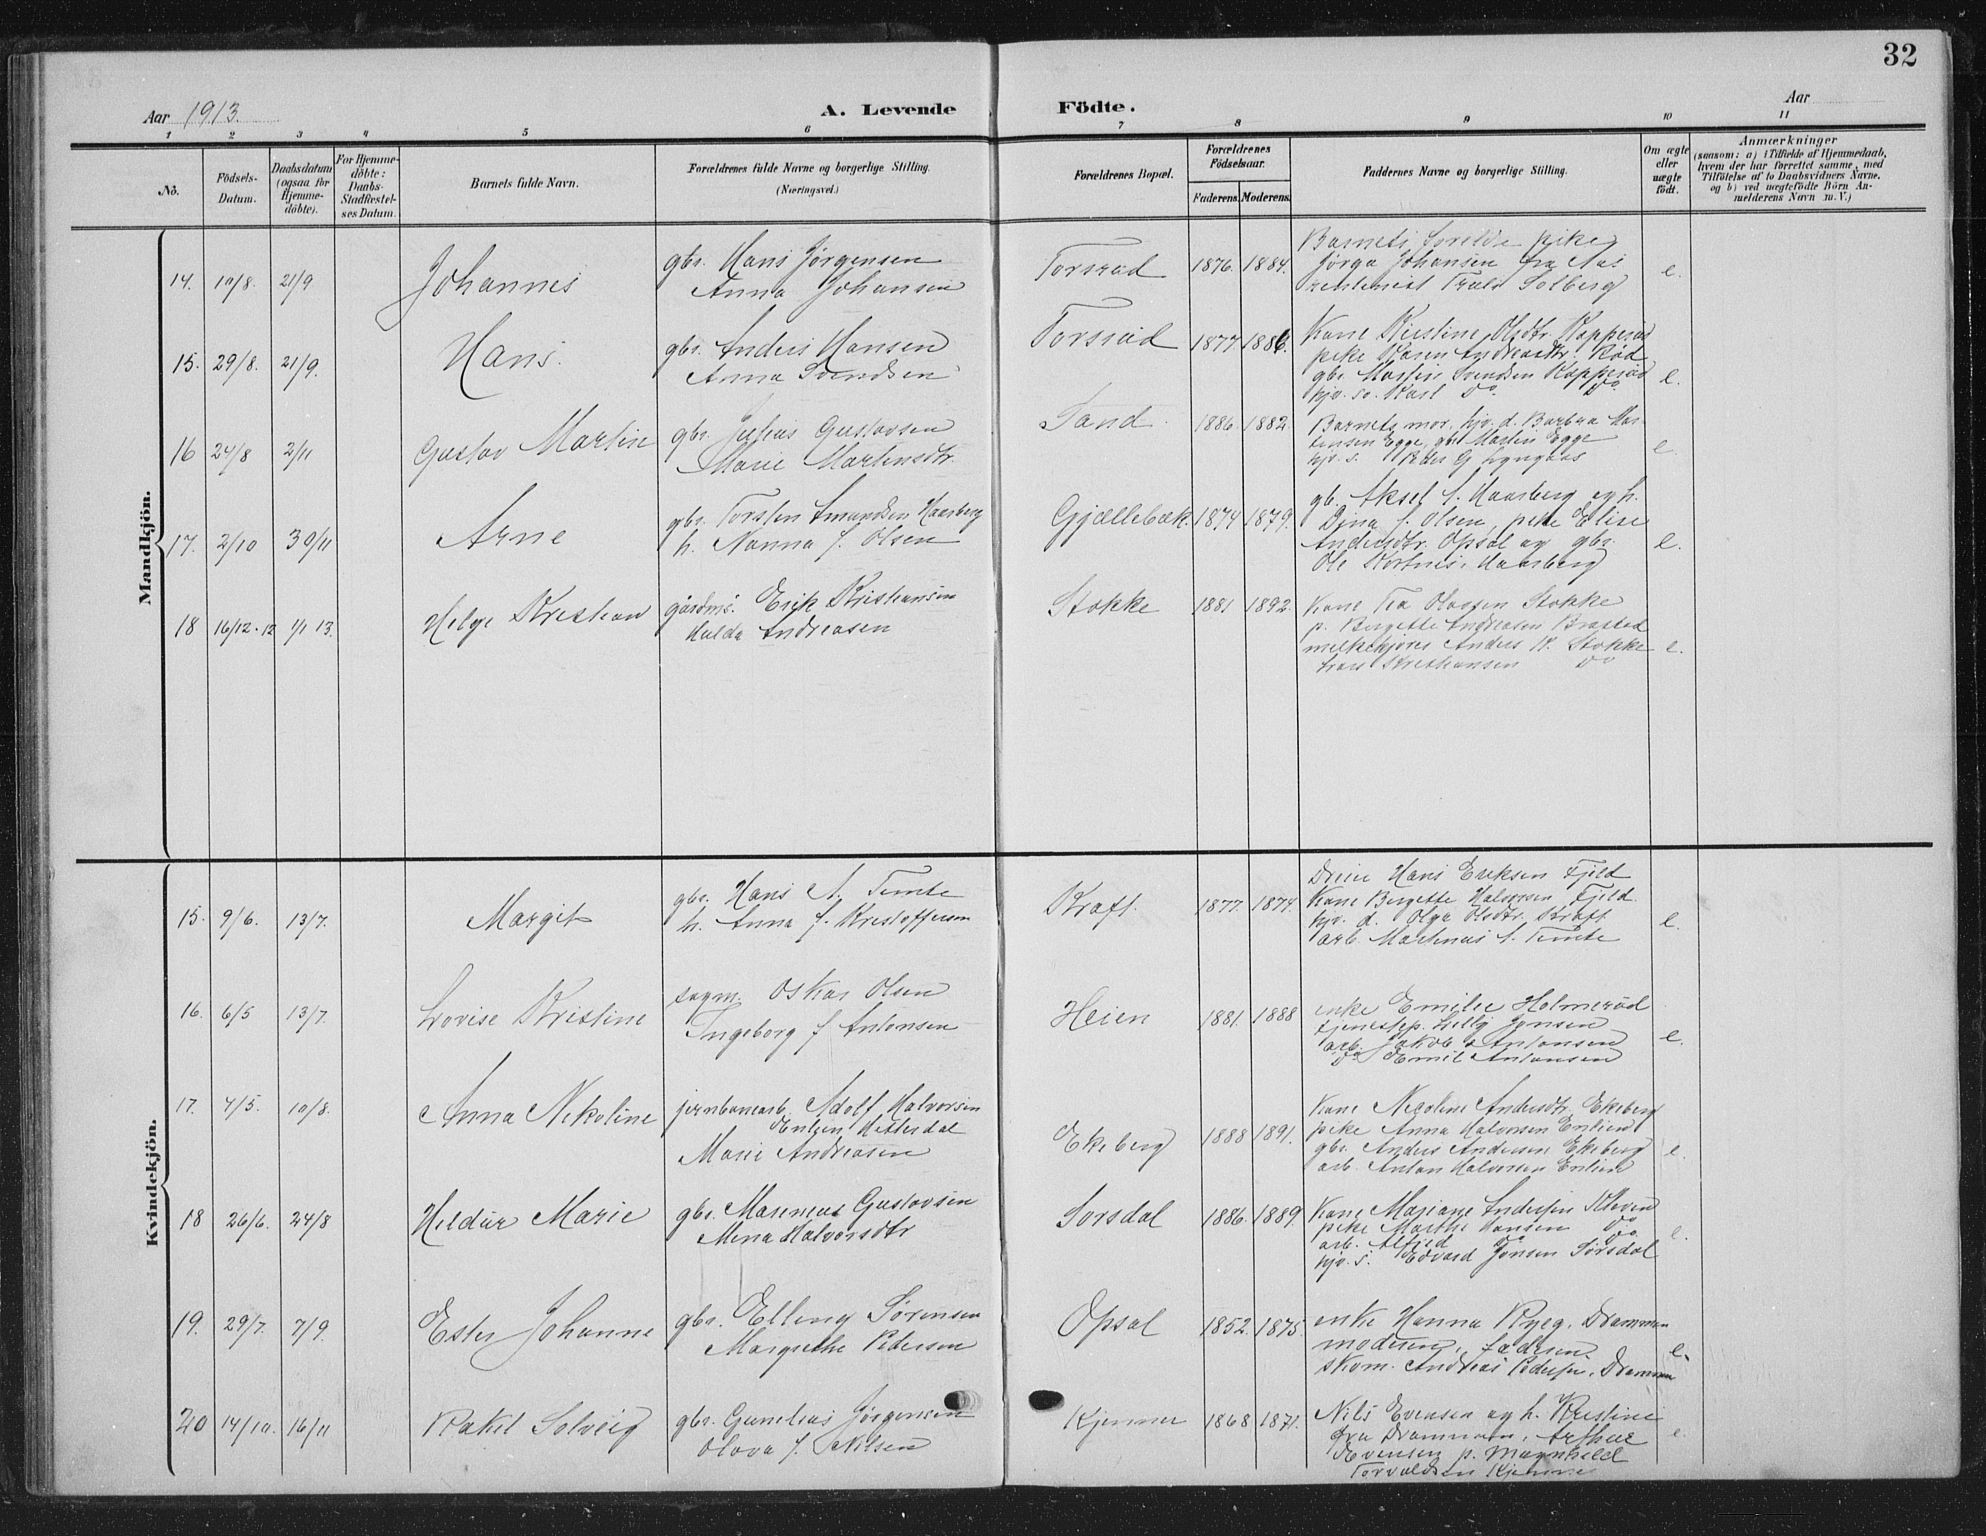 32
Aar 1913.
A. Levende Födte.
Aar
1 2 3 4 5 6 7 8 9 10 11
No.
Födsels-Datum.
Daabsdatum (ogsaa för Hjemme-döbte).
For Hjemme-döbte: Daabs-Stadfæstel-ses Datum.
Barnets fulde Navn.
Forældrenes fulde Navne og borgerlige Stilling. (Næringsvei.)
Forældrenes Bopæl.
Forældrenes Födselsaar.
Faderens. Moderens.
Faddernes Navne og borgerlige Stilling.
Om ægte eller uægte födt.
Anmærkninger
(saasom: a) i Tilfælde af Hjemmedaab,
hvem der har forrettet samme, med
Tilföielse af to Daabsvidners Navne,
og b) ved uægtefödte Börn An-
melderens Navn m. V.)
Mandkjön.
14. 10/8. 21/9 Johannes
gbr. Hans Jørgensen
Anna Johansen
Torsrud 1876. 1884.
Barnets forældre pike
Jørga Johansen fra Aas
Truls Solberg
e.
15. 29/8. 21/9. Hans.
gbr. Anders Hansen
Anna Svendsen
Torsrud 1877 1886.
Kone Kirstine Olsdtr. Kopperud
pike Karen Andreasdtr. Rød
gbr. Martin Svendsen Kopperud
hjv. sø. Karl do. do
e.
16 24/8 2/11 Gustav Martin
gbr. Julius Gustavsen
Marie Martinsdtr.
Sand. 1886. 1882.
Barnets mor, hjv. d. Barbra Mar-
tinsen Egge, gbr. Martin Egge
hjv. s. Peder G. Lyngaas
e
17. 2/10 30/11 Arne
gbr. Torsten Amundsen Haasberg
h. Nanna f. Olsen
Gjællebæk. 1874 1879.
gb. Aksel A. Haasberg og h.
Dina f. Olsen, pike Elise
Andersdtr. Opsal og gbr.
Ole Haasberg
e.
18 16/12.12 1/1 13. Helge Kristian
gårdbr. Erik Kristiansen
Hulda Andreasen
Stokke 1881 1892.
Kone Tea Olassen Stokke
p. Bergette Andreasen Brasted
melkekjører Anders K. Stokke
Lars Kristiansen do
e.
Kvindekjön.
15. 9/6. 13/7. Margit
gbr. Hans A. Temte
h. Anna f. Kristoffersen
Kraft. 1877. 1874.
Dreier Hans Eriksen Fjeld
Kone Bergette Halvorsen Fjeld
hjv. d. Olga Olsdtr. Kraft
arb. Martinus A. Temte
e.
16. 6/5 13/7. Lovise Kristine
sagm. Oskar Olsen
Ingeborg f. Antonsen
Heien 1881. 1888
enke Emilie Holmerud
tjenestep. Lilly Jonsen
arb. Jakob Antonsen
do Emil Antonsen
e.
17. 4/5. 10/8. Anna Nikoline
jernbanearb. Adolf Halvorsen
Enlien Hitterdal
Marie Andreasen
Ekeberg 1888 1891.
Kone Nicoline Andersdtr. Ekeberg
pike Anna Halvorsen Enlien
gbr. Anders Andersen Ekeberg
arb. Anton Halvorsen Enlien
e.
18 26/6. 24/8 Hildur Marie
gbr. Marenius Gustavsen
Mina Halvorsdtr
Sørsdal 1886. 1889.
Kone Mariane Andersen
pike Marthe Hansen do
arb. Alfred do do.
hjv. s. Edvard Jonsen Sørsdal
e.
19. 29/7. 7/9. Ester Johanne
gbr. Elling Sørensen
Margrethe Pedersen
Opsal 1852. 1875.
enke Hanna Ryeg, Drammen
moderen, faderen.
skom. Andreas Pedersen, Drammen
e.
20 14/10. 16/11 Rakel Solveig
gbr. Gunelius Jørgensen
Olava f. Nilsen
Kjenner 1868 1871.
Nils Evensen og h. Kristine
fra Drammen, Arthur
Evensen p. Magnhild
Torvaldsen Kjenner
e.